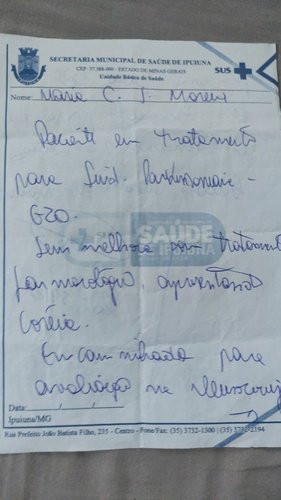 SECRETARIA MUNICIPAL DE SAÚDE DE IPUIUNA
CEP: 37.588-000 - ESTADO DE MINAS GERAIS
Unidade Básica de Saúde
SUS
Nome: Maria C. J. Moreira
Paciente em tratamento
para Sind. Parkinsoniana -
G20.
SAÚDE
IPUIUNA
Sem melhora com tratamento
farmacológico, apresentando
Coréia.
Encaminhada para
avaliação na
Data: / /
Ipuiuna/MG
Rua Prefeito João Batista Filho, 235 - Centro - Fone/Fax: (35) 3732-1300 | (35) 3732-2194